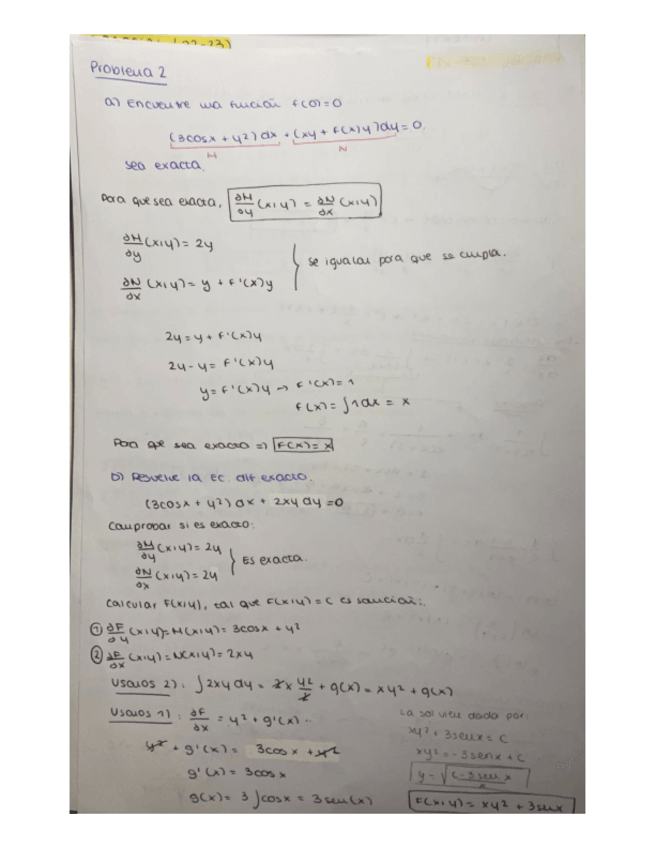 (22-23)
Problema 2
a) Encuentre una función f(0)=0
(3cosx + y²)dx + (xy + f(x)y)dy = 0.
M N
sea exacta.
Para que sea exacta, ∂M/∂y (x,y) = ∂N/∂x (x,y)
∂M/∂y (x,y) = 2y
∂N/∂x (x,y) = y + f'(x)y
se igualan para que se cumpla.
2y = y + f'(x)y
2y - y = f'(x)y
y = f'(x)y → f'(x) = 1
f(x) = ∫1dx = x
Para que sea exacta => f(x) = x
b) Resuelve la ec. dif exacta.
(3cosx + y²)dx + 2xy dy = 0
Comprobar si es exacta:
∂M/∂y (x,y) = 2y
∂N/∂x (x,y) = 2y
Es exacta.
Calcular F(x,y), tal que F(x,y) = C es solución:
① ∂F/∂y (x,y) = M(x,y) = 3cosx + y²
② ∂F/∂x (x,y) = N(x,y) = 2xy
Usamos 2): ∫2xy dy = 2x y²/2 + g(x) = xy² + g(x)
Usamos 1): ∂F/∂x = y² + g'(x)
y² + g'(x) = 3cosx + y²
g'(x) = 3cosx
g(x) = 3∫cosx = 3sen(x)
La sol viene dada por:
xy² + 3senx = C
xy² = -3senx + C
y = √(C-3senx / x)
F(x,y) = xy² + 3senx